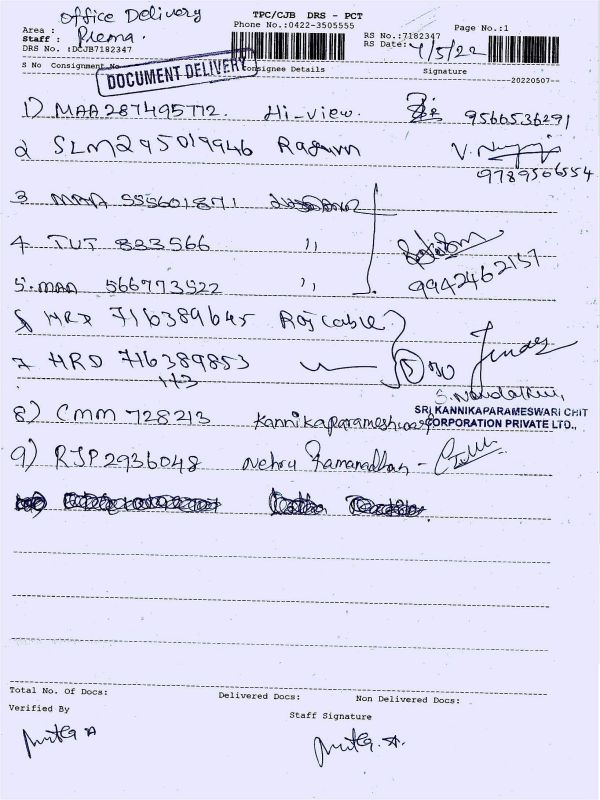 office Delivery
TPC/CJB DRS - PCT
Phone No.:0422-3505555
Area :
Staff : Prema.
DRS No. :DCJB7182347
RS No.:7182347
RS Date: 7/5/22
Page No.:1
S No Consignment No
Consignee Details
Signature
DOCUMENT DELIVERY
--20220507--
1) MAA287495772 Hi-view. 9566536291
2 SLM295019946 V.
9789506554
3 MAA 555601871
4 TUT 883566 ,,
5. MAA 566773522 ,, 9942462157
HRD 716389645 Raj cable
7 HRD 716389853
S. Nandakumar
8) CMM 728213 Kannikaparameshwari
SRI KANNIKAPARAMESWARI CHIT
CORPORATION PRIVATE LTD.,
9) RJP2936048 Nehru Ramanadhan -
Total No. Of Docs:
Delivered Docs:
Non Delivered Docs:
Verified By
Staff Signature